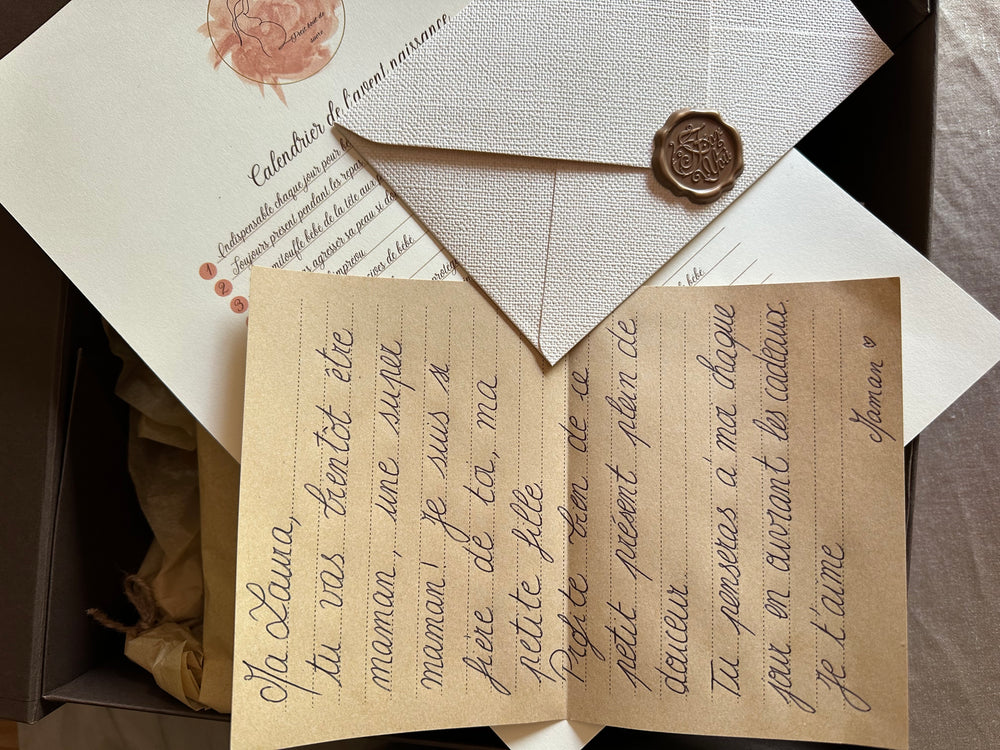 Calendrier de l'avent naissance
1 Indispensable chaque jour pour
2 Toujours présent pendant les repas
3 bébé de la tête aux
agresser sa peau si
de bébé
bébé
Ma Laura,
tu vas bientôt être
maman, une super
maman! Je suis si
fière de toi, ma
petite fille.
Profite bien de ce
petit présent plein de
douceur.
Tu penseras à moi chaque
jour en ouvrant les cadeaux
Je t'aime
Maman ♡